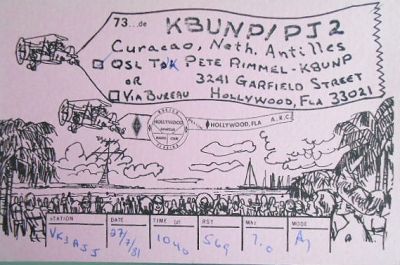 73...de K8UNP/PJ2
Curacao, Neth. Antilles
QSL To PETE RIMMEL-K8UNP
OR 3241 GARFIELD STREET
VIA BUREAU HOLLYWOOD, FLA 33021
HOLLYWOOD
HOLLYWOOD, FLA A.R.C.
STATION DATE TIME RST MHz MODE
VK3AJJ 27/7/81 1040 569 7.0 A1